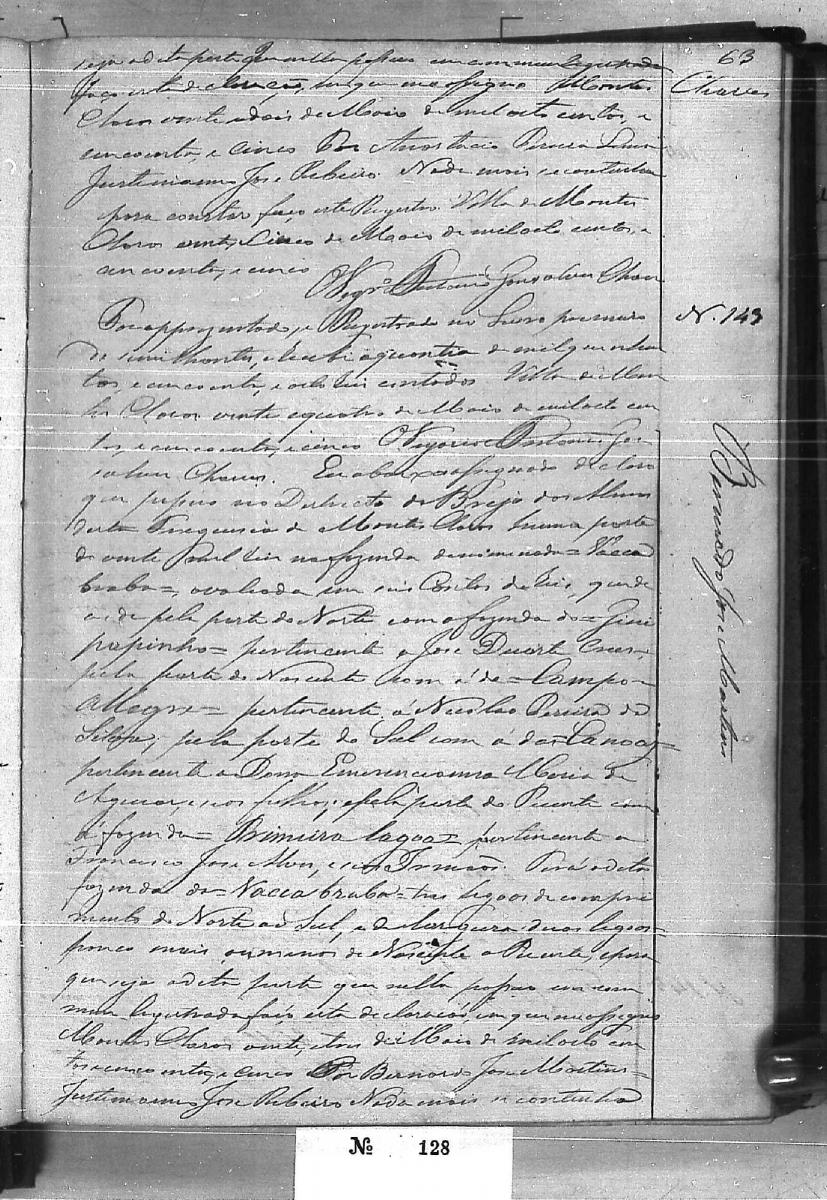 63
Chaves
seja a dita parte que nella possuo em commum legistrada
faço esta declaração, em que me assigno Montes
Claros vinte e dois de Maio de mil oito centos, e
cincoenta, e cinco Por Anastacio Pereira
Justiniano José Ribeiro. Nada mais se continha
para constar faço este Registro. Villa de Montes
Claros vinte, e cinco de Maio de mil oito centos, e
cincoenta, e cinco
O Vigrº Antonio Gonsalves Chaves
N. 143
Foi appresentado, e Registrado no Livro primeiro
de similhantes, e recebi a quantia de mil
tos, e cincoenta, e oito reis contados. Villa de Mon
tes Claros vinte e quatro de Maio de mil oito cen
tos, e cincoenta, e cinco O Vigario Antonio Gon
salves Chaves. Eu abaixo assignado declaro
que possuo no Districto do Brejo das Almas
desta Freguesia de Montes Claros huma parte
de vinte mil reis na fazenda denominada = Vacca
braba =, avaliada em seis Contos de reis, que de
vide pela parte do Norte com a fazenda do = Geni
papinho = pertincente a José Duarte
pela parte do Nascente com á do = Campo
Allegre = pertincente á Nicoláo Pereira da
Silva; pela parte do Sul com á das Canoas =
pertincente a Dona Emerenciana Maria de
Aguiar, e seos filhos; e pela parte do Puente com
a fazenda = Primeira lagoa = pertincente a
Francisco José Alves, e seos Irmãos. Terá a dita
fazenda da = Vacca braba = tres legoas de compri
mento do Norte ao Sul, e de largura duas legoas
pouco mais, ou menos de Nascente a Puente, e para
que seja a dita parte que nella possuo em com
mum legistrada faço esta declaração, em que me assigno
Montes Claros vinte, e tres de Maio de mil oito cen
tos e cincoenta, e cinco Por Bernardo José Martins =
Justiniano José Ribeiro Nada mais se continha
Bernardo José Martins
Nº 128